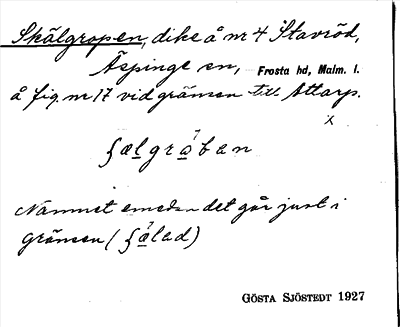 Skälgropen, dike å nr 4 Stavröd,
Äspinge sn, Frosta hd, Malm. l.
å fig. nr 17 vid gränsen till Attarp.
x
ʃælgrøbæn
Namnet emedan det går just i
gränsen (ʃælad)
GÖSTA SJÖSTEDT 1927